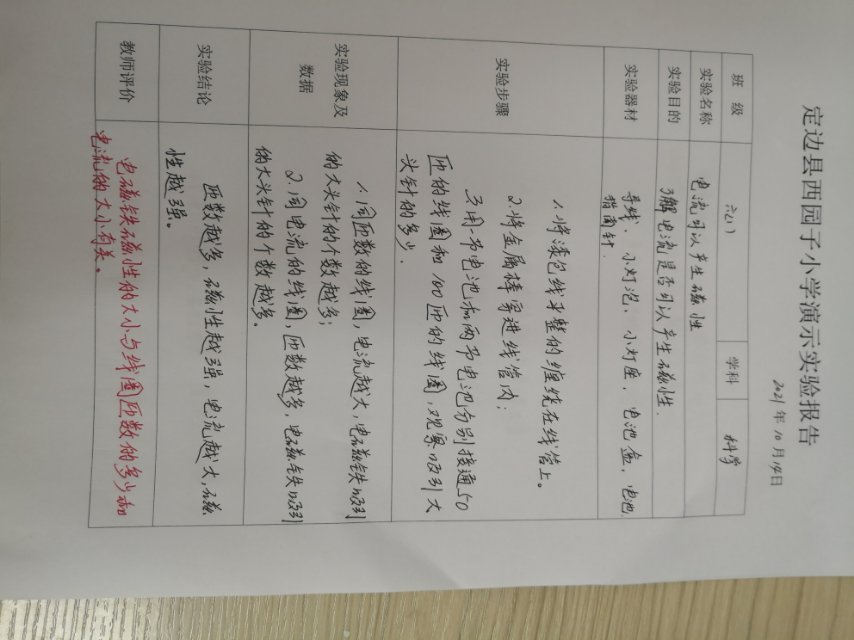 定边县西园子小学演示实验报告
2021年10月14日
班级 六(1) 学科 科学
实验名称 电流可以产生磁性
实验目的 了解电流是否可以产生磁性.
实验器材 导线、小灯泡、小灯座、电池盒、电池
指南针.
实验步骤
1.将漆包线平整的缠绕在线管上。
2.将金属棒穿进线管内;
3.用一节电池和两节电池分别接通50
匝的线圈和100匝的线圈,观察吸引大
头针的多少.
实验现象及
数据
1.同匝数的线圈,电流越大,电磁铁吸引
的大头针的个数越多;
2.同电流的线圈,匝数越多,电磁铁吸引
的大头针的个数越多。
实验结论
匝数越多,磁性越强,电流越大,磁
性越强。
教师评价
电磁铁磁性的大小与线圈匝数的多少和
电流的大小有关。